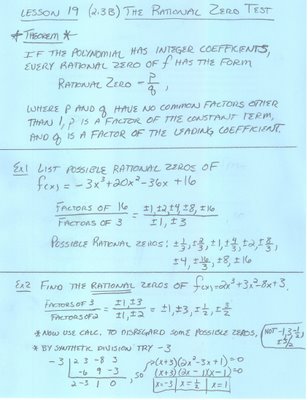 LESSON 19 (2.3B) THE RATIONAL ZERO TEST
* THEOREM *
IF THE POLYNOMIAL HAS INTEGER COEFFICIENTS,
EVERY RATIONAL ZERO OF f HAS THE FORM
RATIONAL ZERO = p/q,
WHERE P AND q HAVE NO COMMON FACTORS OTHER
THAN 1, P IS A FACTOR OF THE CONSTANT TERM,
AND q IS A FACTOR OF THE LEADING COEFFICIENT.
Ex1 LIST POSSIBLE RATIONAL ZEROS OF
f(x) = -3x³+20x²-36x+16
FACTORS OF 16 / FACTORS OF 3 = ±1,±2,±4,±8,±16 / ±1,±3
POSSIBLE RATIONAL ZEROS: ±1/3, ±2/3, ±1, ±4/3, ±2, ±8/3,
±4, ±16/3, ±8, ±16
Ex2 FIND THE RATIONAL ZEROS OF f(x)=2x³+3x²-8x+3.
FACTORS OF 3 / FACTORS OF 2 = ±1,±3 / ±1,±2 = ±1,±3,±1/2,±3/2
* NOW USE CALC. TO DISREGARD SOME POSSIBLE ZEROS.
* BY SYNTHETIC DIVISION TRY -3
-3 | 2 3 -8 3
-6 9 -3
2 -3 1 0, SO
(x+3)(2x²-3x+1)=0
(x+3)(2x-1)(x-1)=0
x=-3 | x=1/2 | x=1